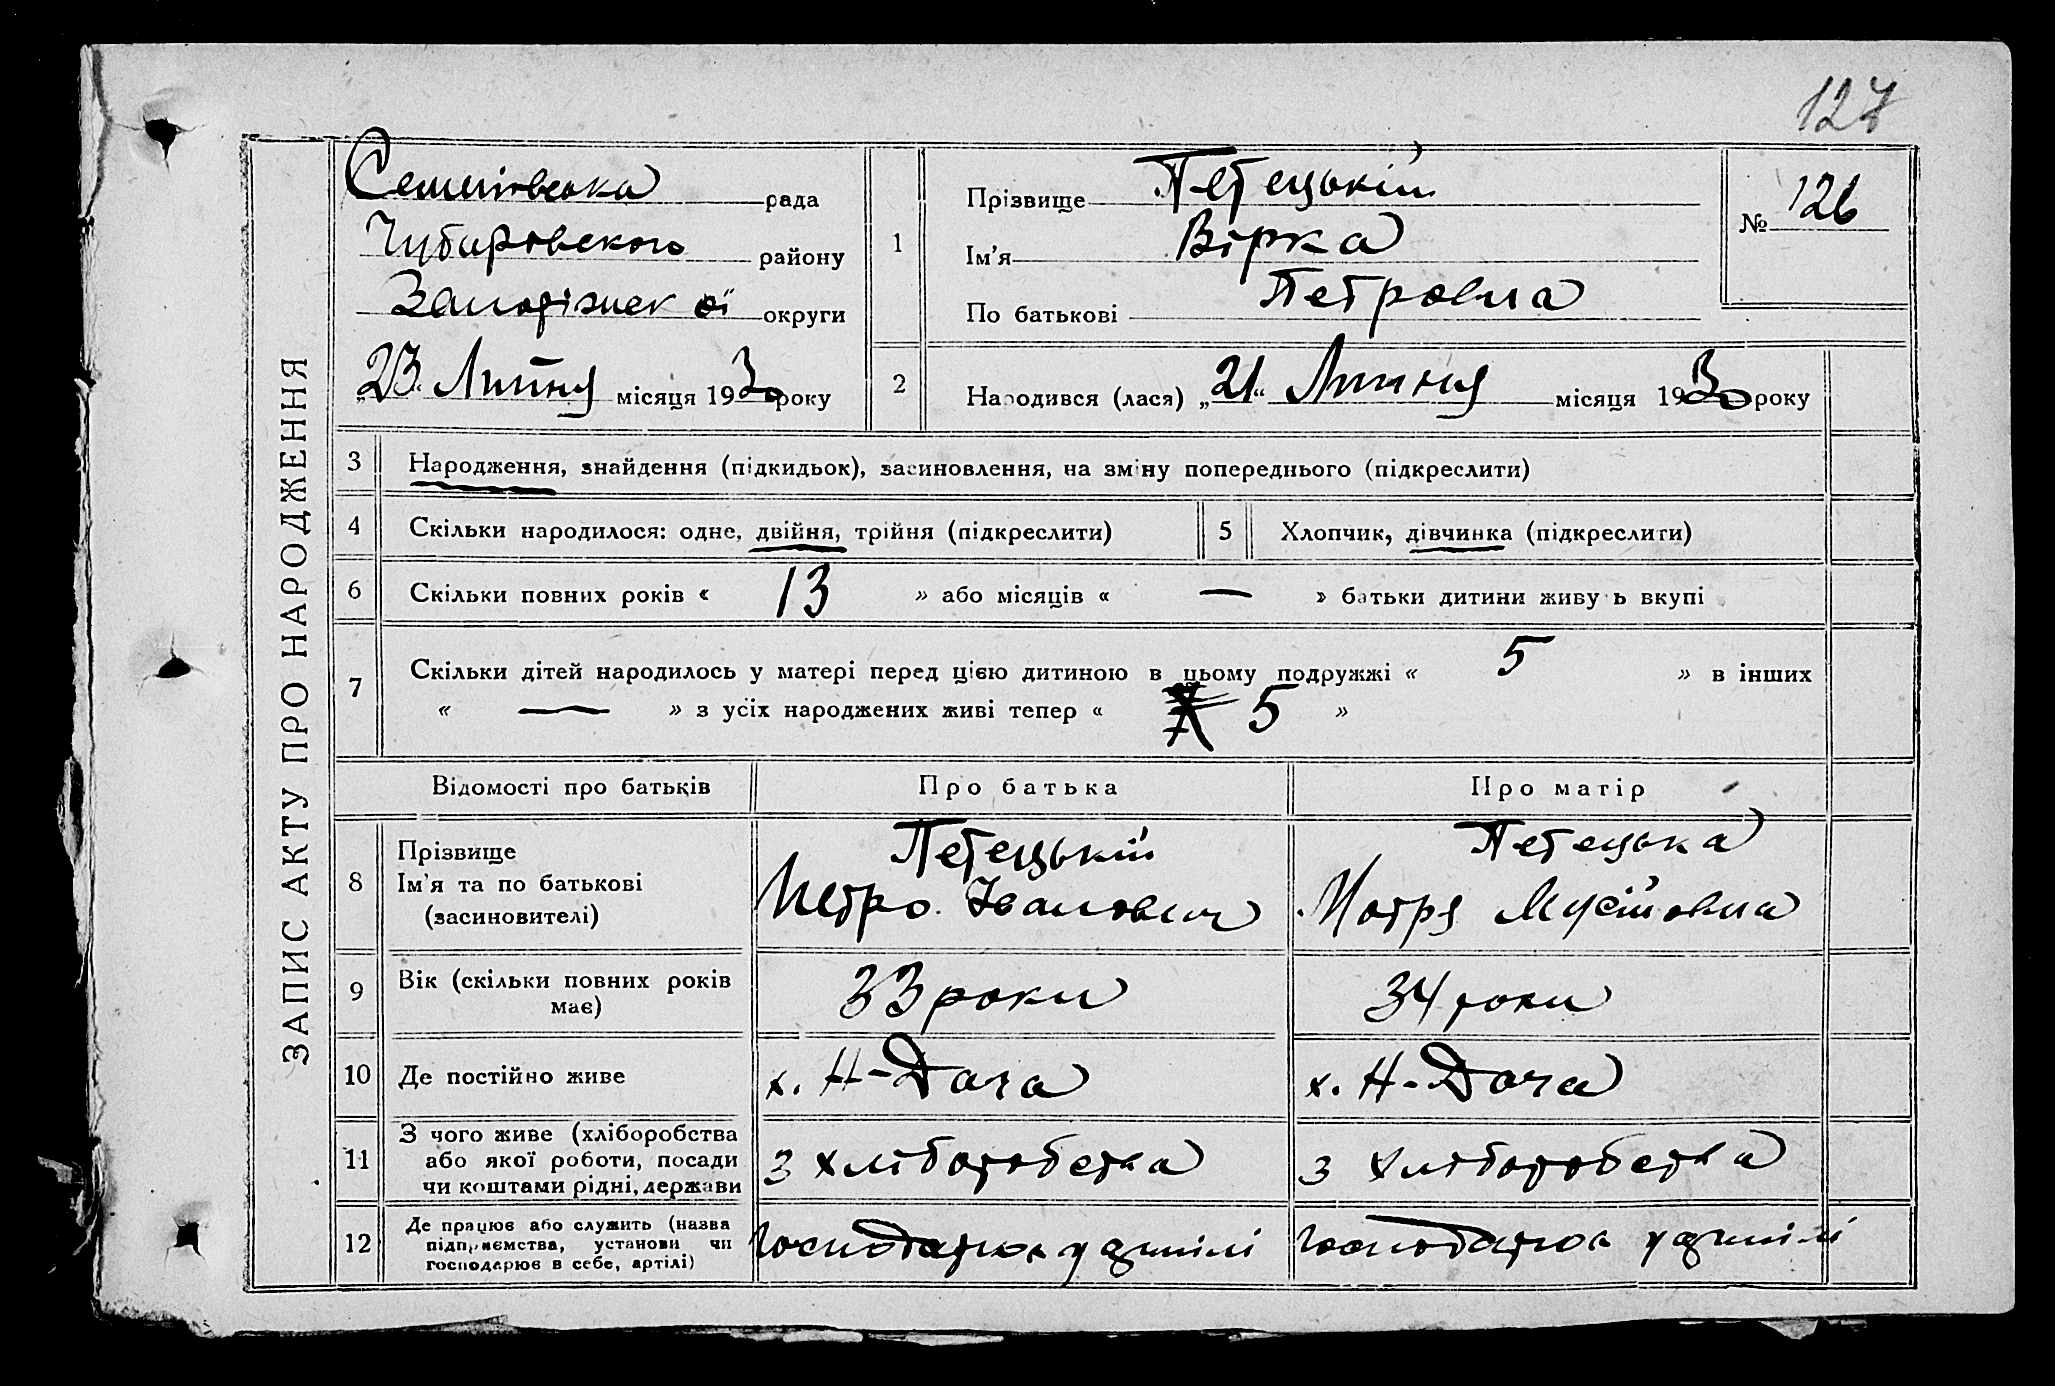 127
ЗАПИС АКТУ ПРО НАРОДЖЕННЯ
Семенівська рада
Чубарівського району
Запоріжської округи
„23“ Липня місяця 1930 року
1
Прізвище Петецький
Ім'я Вірка
По батькові Петровна
№ 126
2 Народився (лася) „21“ Липня місяця 1930 року
3 Народження, знайдення (підкидьок), засиновлення, на зміну попереднього (підкреслити)
4 Скільки народилося: одне, двійня, трійня (підкреслити)
5 Хлопчик, дівчинка (підкреслити)
6 Скільки повних років « 13 » або місяців « — » батьки дитини живуть вкупі
7 Скільки дітей народилось у матері перед цією дитиною в цьому подружжі « 5 » в інших
« — » з усіх народжених живі тепер « 5 »
Відомості про батьків Про батька Про матір
8 Прізвище
Ім'я та по батькові
(засиновителі)
Петецький
Петро Іванович
Петецька
Мотря Мусіївна
9 Вік (скільки повних років
має)
33 роки
34 роки
10 Де постійно живе х. Н-Дача х. Н-Дача
11 З чого живе (хліборобства
або якої роботи, посади
чи коштами рідні, держави
з хліборобства
з хліборобства
12 Де працює або служить (назва
підприємства, установи чи
господарює в себе, артілі)
Господарює у артілі
Господарює у артілі